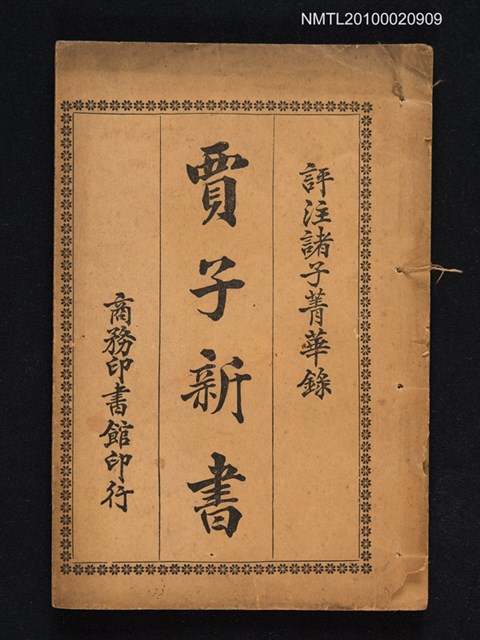 NMTL20100020909
評注諸子菁華錄
賈子新書
商務印書館印行